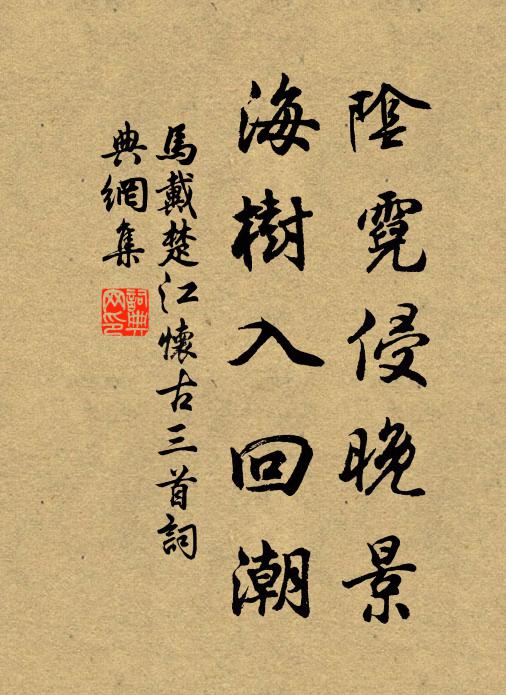 陰霓侵晚景
海樹入回潮
馬戴楚江懷古三首詞
典網集
詞典
网印